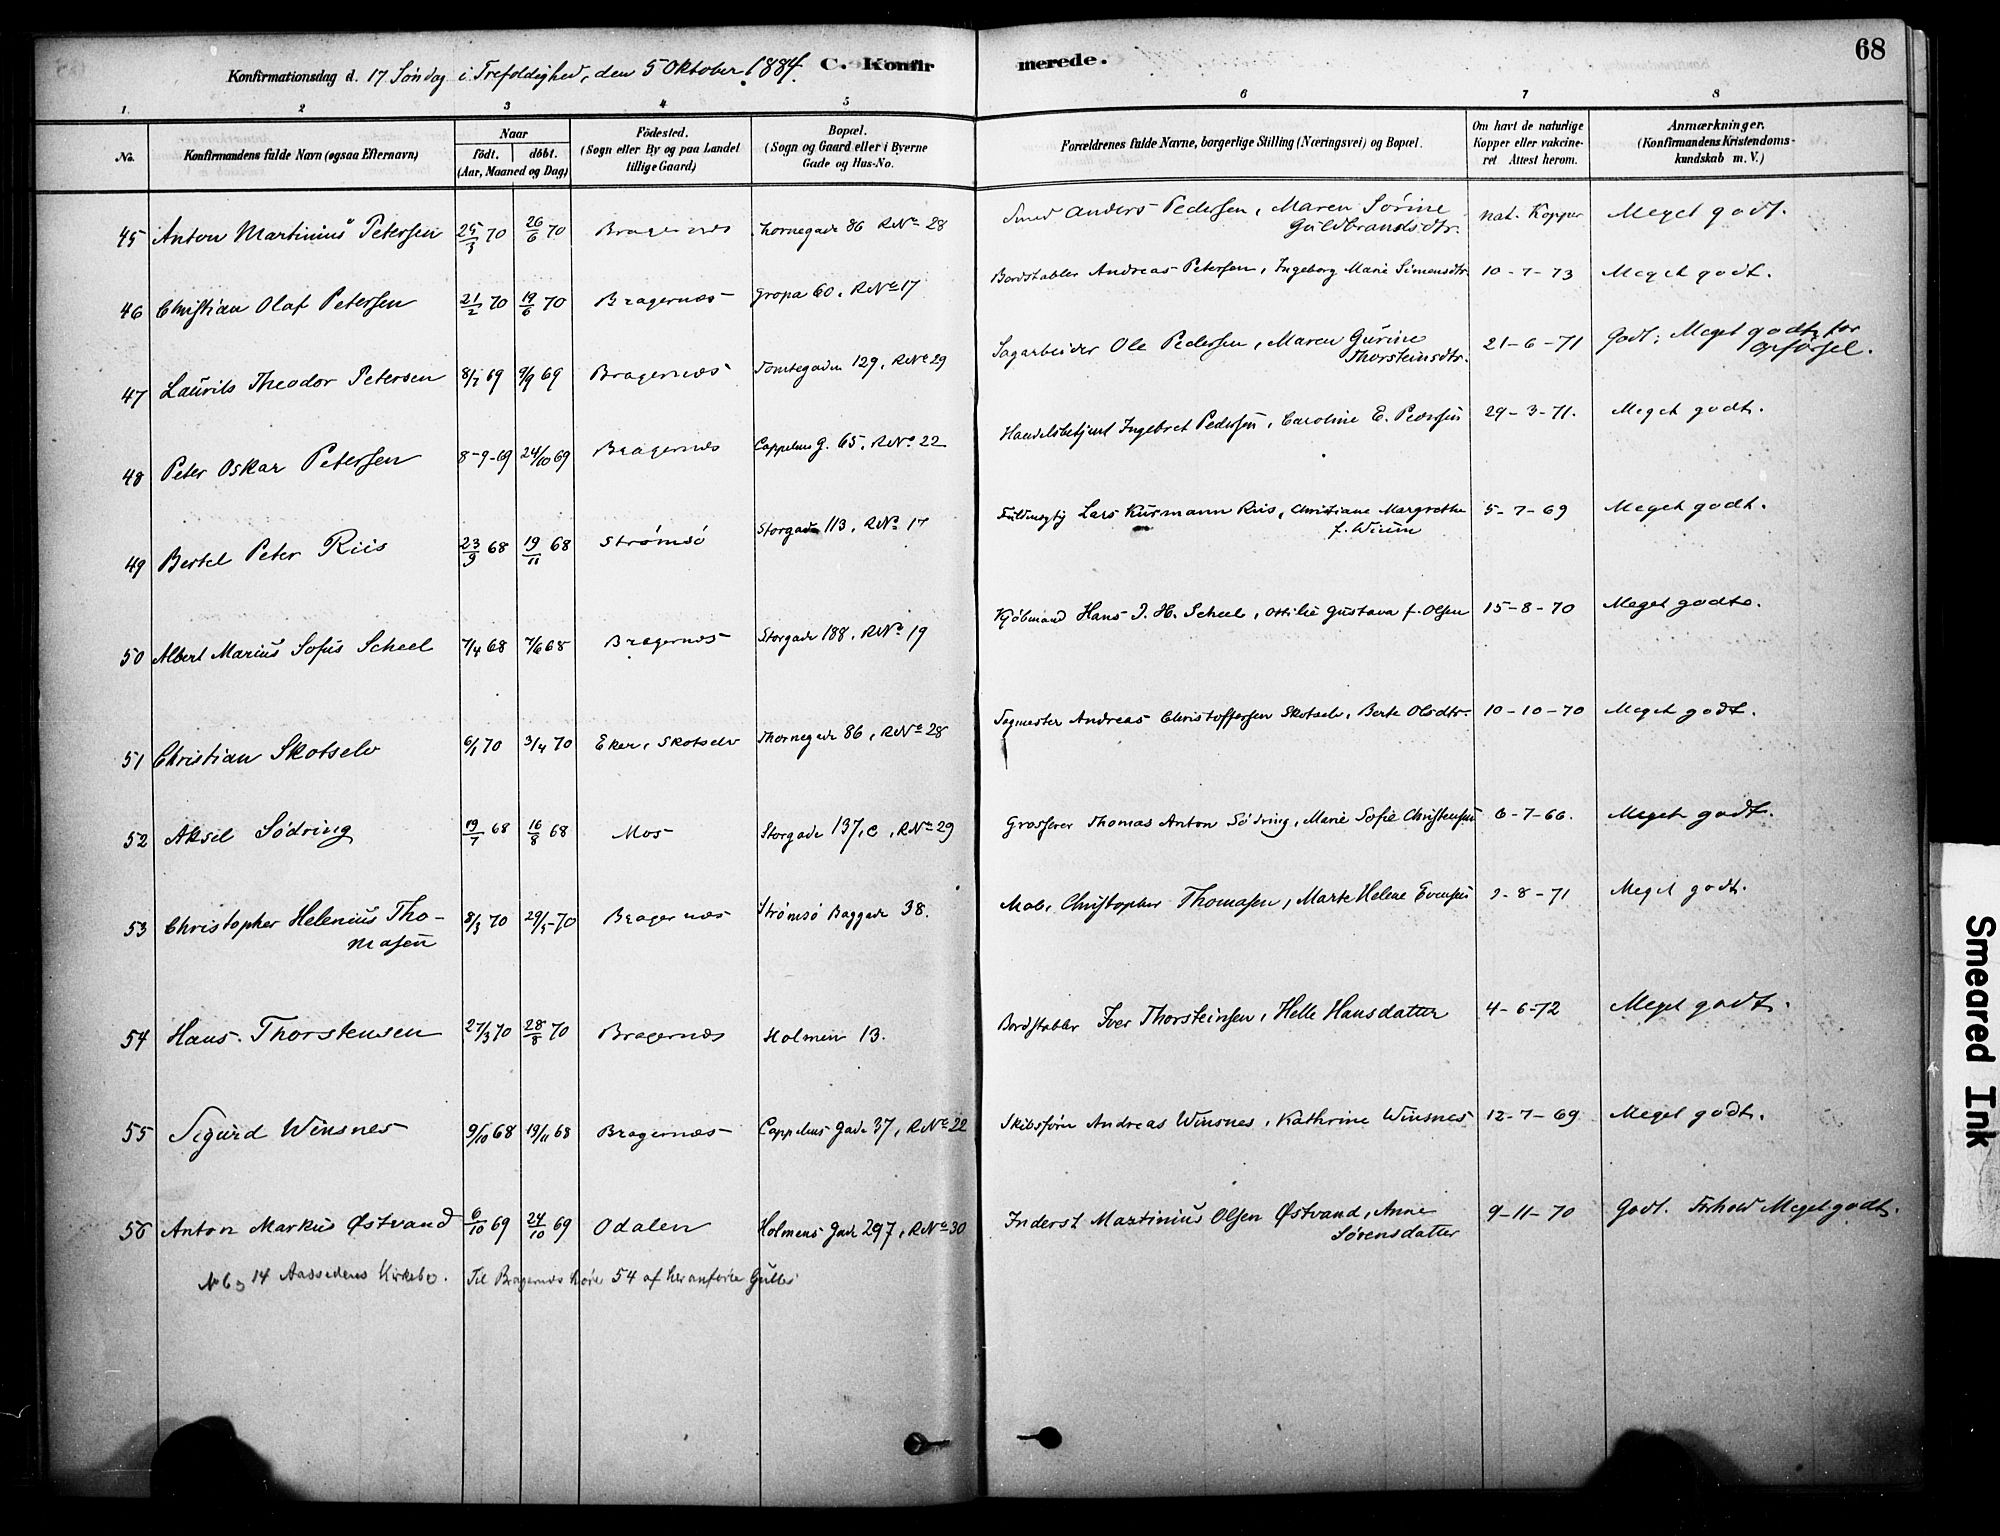 68
Konfirmationsdag d. 17 Søndag i Trefoldighed, den 5 Oktober 1884. C. Konfirmerede.
1. 2 3 4 5 6 7 8
No. Konfirmandens fulde Navn (ogsaa Efternavn) Naar födt. döbt. (Aar, Maaned og Dag) Födested. (Sogn eller By og paa Landet tillige Gaard) Bopæl. (Sogn og Gaard eller i Byerne Gade og Hus-No. Forældrenes fulde Navne, borgerlige Stilling (Næringsvei) og Bopæl. Om havt de naturlige Kopper eller vakcineret Attest herom. Anmærkninger. (Konfirmandens Kristendomskundskab m. V.)
45 Anton Martinius Petersen 25/3 70 26/6 70 Bragernæs Thornegade 86 RNo 28 Smed Anders Pedersen, Maren Sørine Guldbrandsdtr. nat. Kopper Meget godt.
46 Christian Olaf Petersen 21/2 70 19/6 70 Bragernæs Gropa 60, RNo 17 Bordstabler Andreas Petersen, Ingeborg Marie Simensdtr 10-7-73 Meget godt.
47 Laurits Theodor Petersen 8/7 69 9/9 69 Bragernæs Tomtegaden 129, RNo 29 Sagarbeider Ole Pedersen, Maren Gurine Thorsteinsdtr. 21-6-71 Godt; Meget godt for opførsel.
48 Peter Oskar Petersen 8-9-69 24/10 69 Bragernæs Cappelens g. 65, RNo 22 Handelsbetjent Ingebret Pedersen, Caroline E. Pedersen 29-3-71. Meget godt.
49 Bertel Peter Riis 23/9 68 19/11 68 Strømsø Storgade 113, RNo 17 Fuldmægtig Lars Kurmann Riis, Christiane Margrethe f. Wium 5-7-69 Meget godt.
50 Albert Marius Sofus Scheel 7/4 68 7/6 68 Bragernæs Storgade 188, RNo 19 Kjøbmand Hans J. H. Scheel, Ottilie Gustava f. Olsen 15-8-70 Meget godt.
51 Christian Skotselv 6/1 70 3/4 70 Eker, Skotselv Thornegade 86, RNo 28 Sagmester Andreas Christoffersen Skotselv, Berte Olsdtr. 10-10-70 Meget godt.
52 Aksel Sødring 19/7 68 16/8 68 Mos Storgade 137, c, RNo 29 Grosserer Thomas Anton Sødring, Marie Sofie Christensen 6-7-66. Meget godt.
53 Christopher Helenius Thomasen 8/3 70 29/5-70 Bragernæs Strømsø Baggade 38. Mob, Christopher Thomasen, Marte Helene Evensen 2-8-71 Meget godt.
54 Hans Thorstensen 27/3 70 28/8 70 Bragernæs Holmen 13. Bordstabler Iver Thorsteinsen, Helle Hansdatter 4-6-72 Meget godt.
55 Sigurd Winsnes 9/10 68 19/11 68 Bragernæs Cappelens Gade 37, RNo 22 Skibsfører Andreas Winsnes, Kathrine Winsnes 12-7-69 Meget godt.
56 Anton Markus Østvand 6/10 69 24/10 69 Odalen Holmens Gade 297, RNo 30 Inderst Martinius Olsen Østvand, Anne Sørensdatter 9-11-70 Godt. Forhold Meget godt.
14 Aassidens Kirkebo. Til Bragernæs 54 af
Smeared Ink